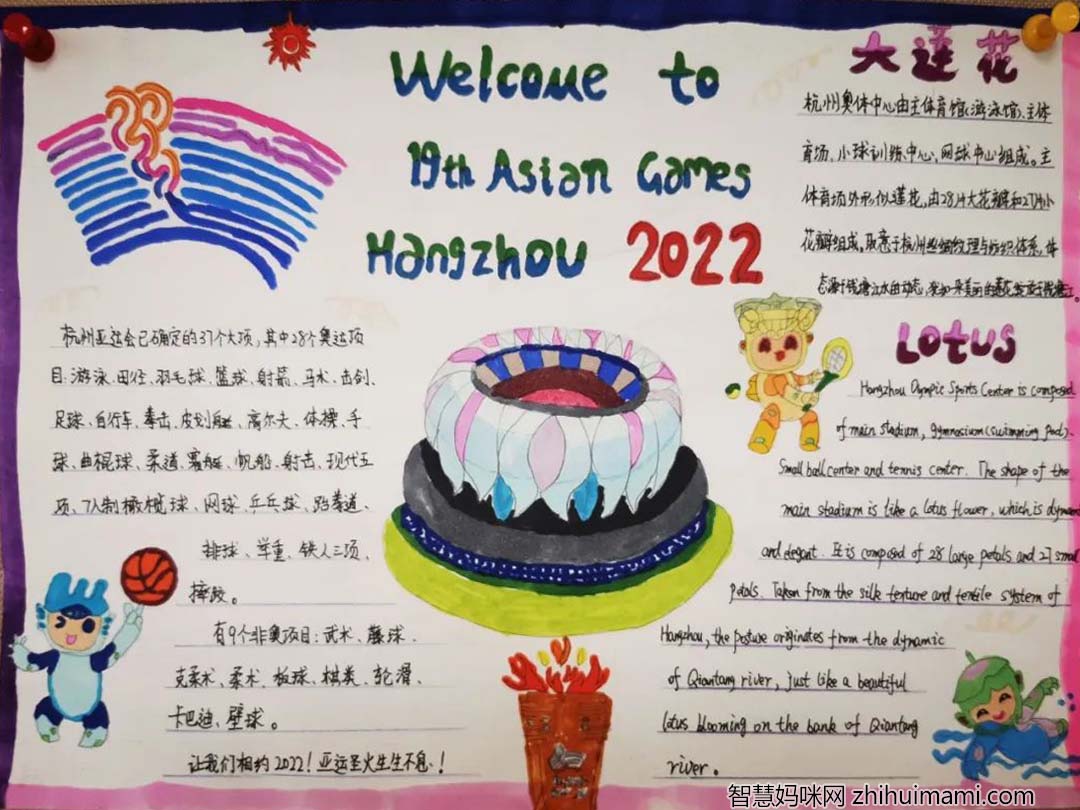 Welcome to
19th Asian Games
Hangzhou 2022
杭州亚运会已确定的37个大项,其中28个奥运项
目:游泳、田径、羽毛球、篮球、射箭、马术、击剑、
足球、自行车、拳击、皮划艇、高尔夫、体操、手
球、曲棍球、柔道、赛艇、帆船、射击、现代五
项、7人制橄榄球、网球、乒乓球、跆拳道、
排球、举重、铁人三项、
摔跤。
有9个非奥项目:武术、藤球、
克柔术、柔术、板球、棋类、轮滑、
卡巴迪、壁球。
让我们相约2022!亚运圣火生生不息!
大莲花
杭州奥体中心由主体育馆(游泳馆)、主体
育场、小球训练中心、网球中心组成。主
体育场外形似莲花,由28片大花瓣和27片小
花瓣组成。取意于杭州丝绸纹理与纺织体系,体
态源于钱塘江水的动态,宛如一朵美丽的莲花
Lotus
Hangzhou Olympic Sports Center is composed
of main stadium, gymnasium(swimming pool).
Small ball center and tennis center. The shape of the
main stadium is like a lotus flower, which is dynamic
and elegant. It is composed of 28 large petals and 27 small
petals. Taken from the silk texture and textile system of
Hangzhou, the posture originates from the dynamic
of Qiantang river, just like a beautiful
lotus blooming on the bank of Qiantang
river。
智慧妈咪网 zhihuimami.com